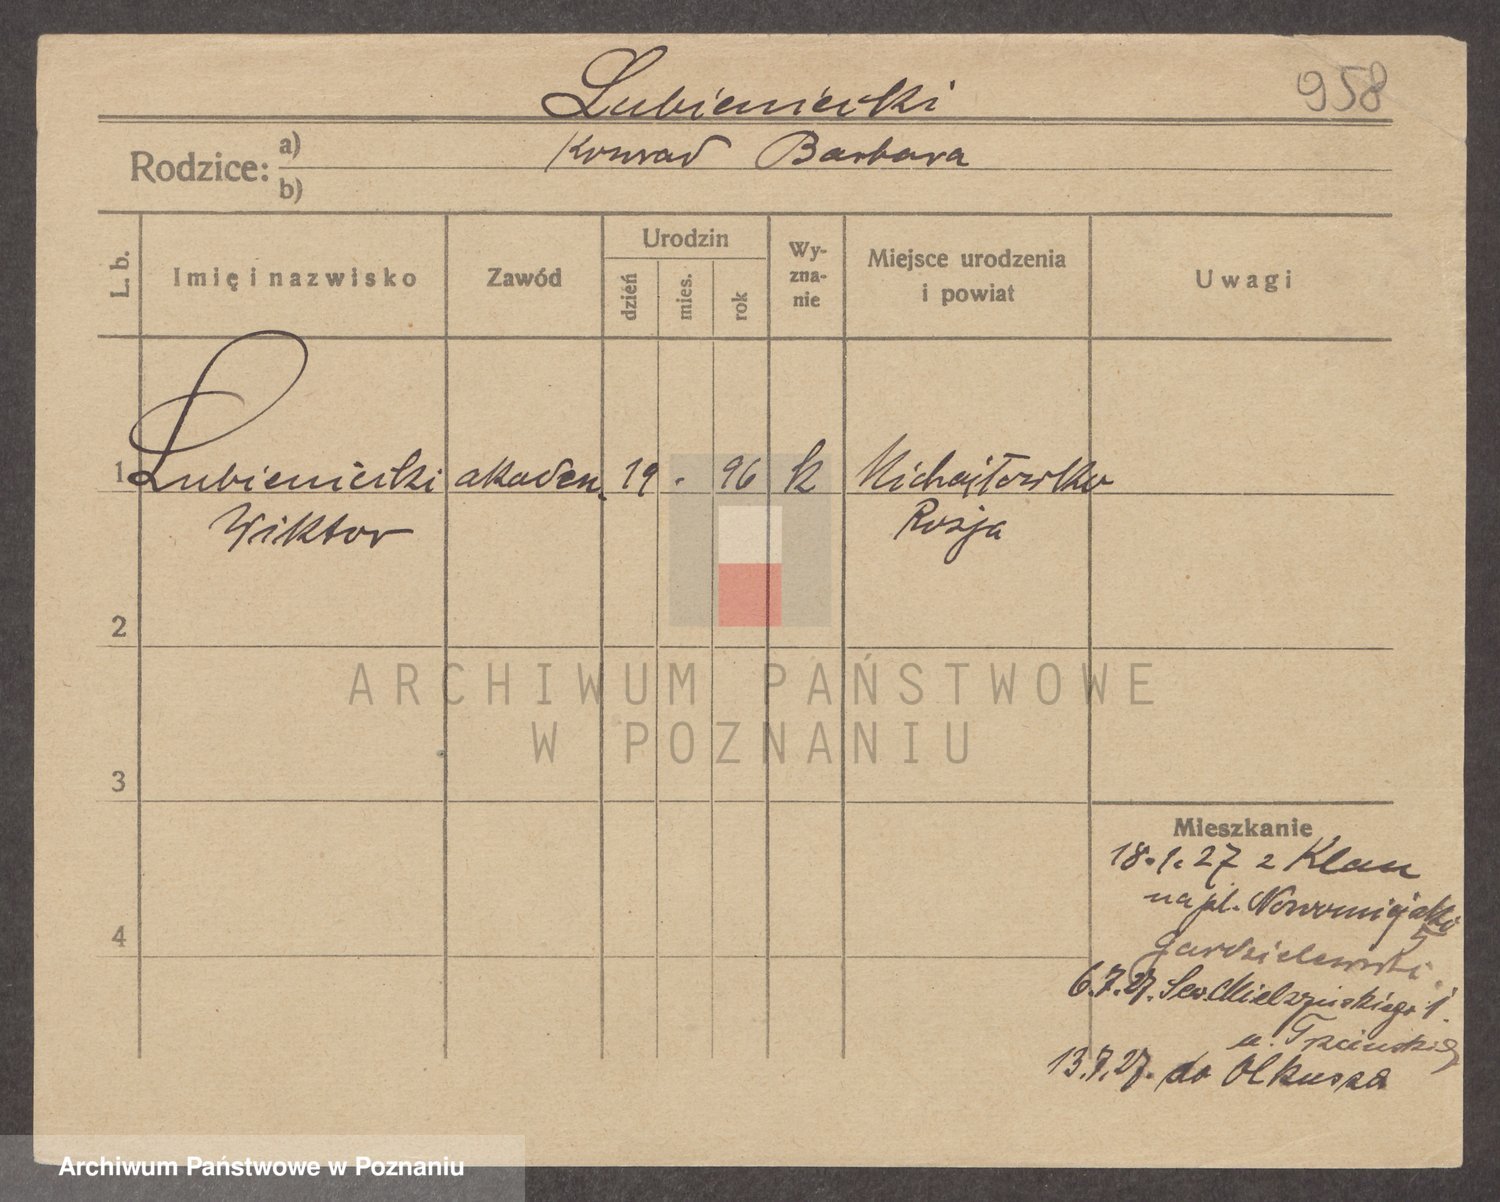 958
Lubieniecki
Rodzice: a) Konrad Barbara
b)
L. b. Imię i nazwisko Zawód Urodzin dzień mies. rok Wy-zna-nie Miejsce urodzenia i powiat Uwagi
1 Lubieniecki akadem. 19 . 96 k Michajłowka
Wiktor Rosja
2
3
4
Mieszkanie
18.1.27 z Klan
na pl. Nowomiejski
5
Gardzielewski.
6.7.27. Sew. Mielzyńskiego 1.
u. Trzcińskiej
13.7.27. do Olkusza
ARCHIWUM PAŃSTWOWE
W POZNANIU
Archiwum Państwowe w Poznaniu